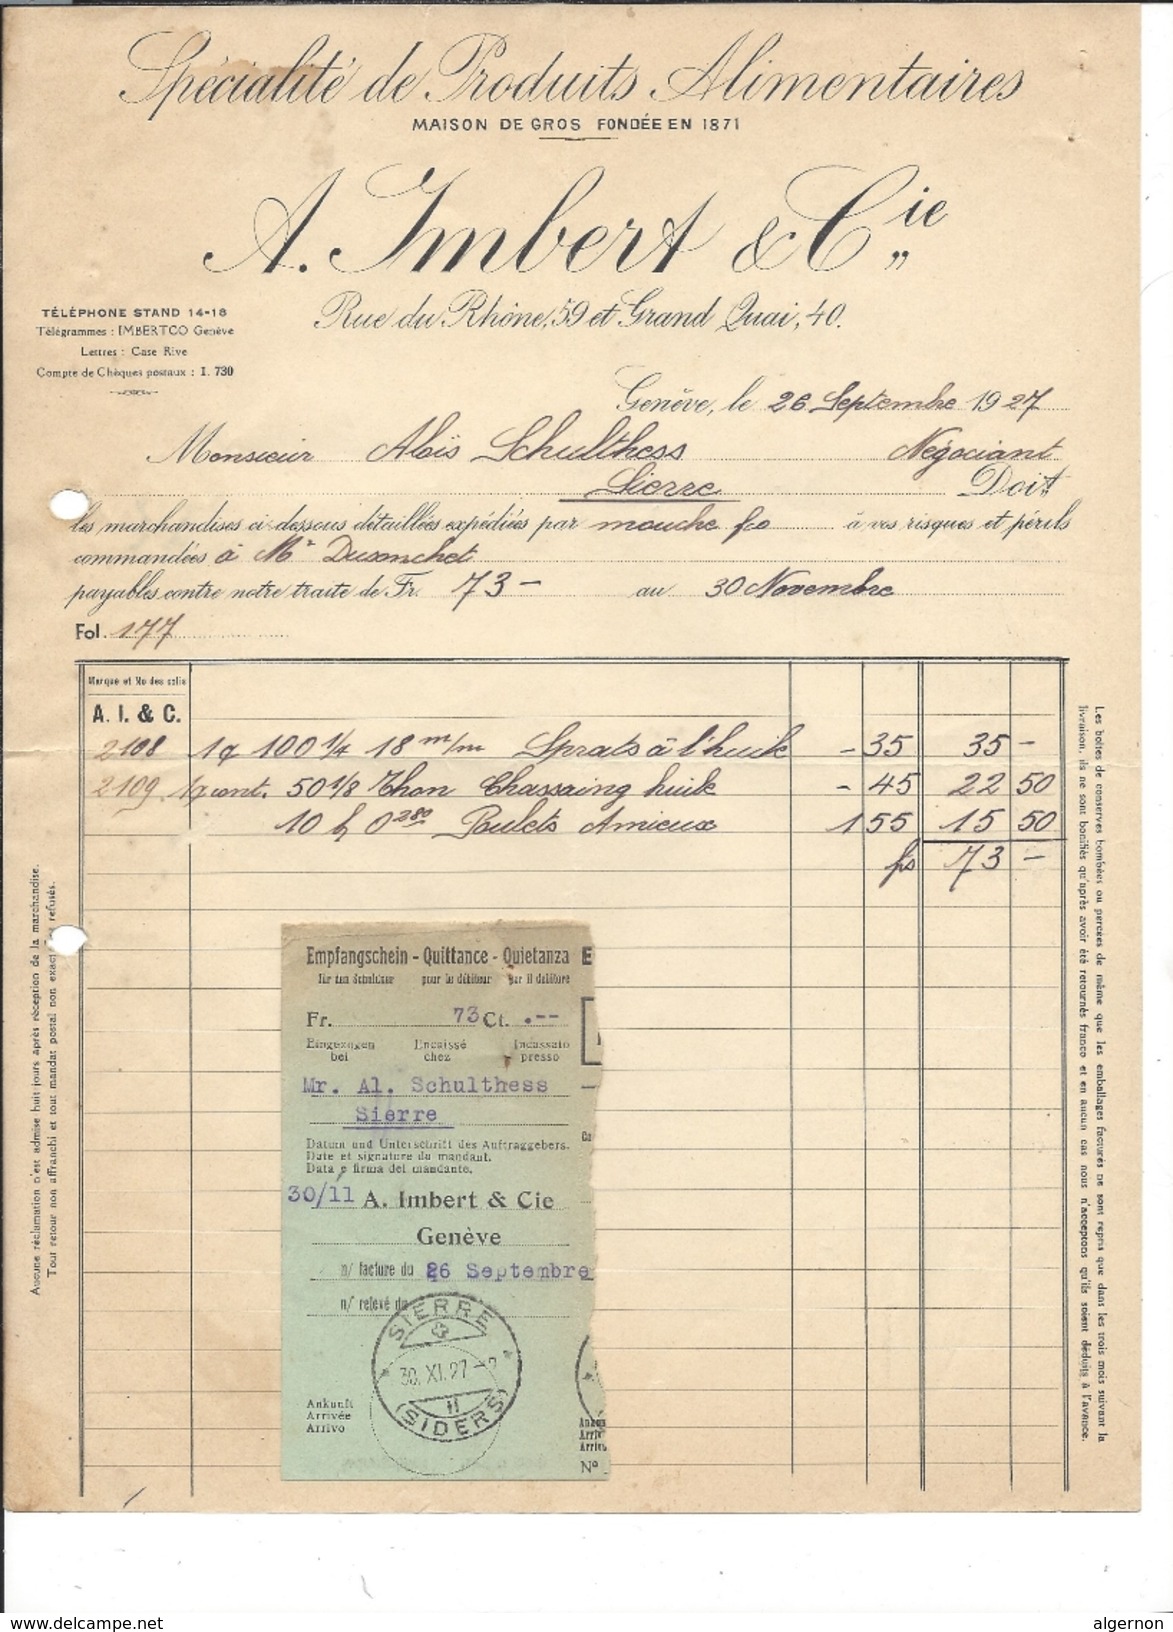 Spécialité de Produits Alimentaires
MAISON DE GROS FONDÉE EN 1871
A. Imbert & Cie
TÉLÉPHONE STAND 14-18
Télégrammes : IMBERTCO Genève
Lettres : Case Rive
Compte de Chèques postaux : I. 730
Rue du Rhône, 59 et Grand Quai, 40.
Genève, le 26 Septembre 1927
Monsieur Aloïs Schulthess Négociant
Sierre Doit
les marchandises ci-dessous détaillées expédiées par mouche fco à vos risques et périls
commandées à Mr Dusonchet
payables contre notre traite de Fr. 73 - au 30 Novembre
Fol. 177
Marque et No des colis
A. I. & C.
2108 1q 100 1/4 18 m/m Sprats à l'huile - 35 35 -
2109 1q cont. 50 1/8 Thon Chassaing huile - 45 22 50
10 h 0 280 Poulets Amieux 1 55 15 50
fs 73 -
Aucune réclamation n'est admise huit jours après réception de la marchandise.
Tout retour non affranchi et tout mandat postal non exact refusés.
Les boîtes de conserves bombées ou percées de même que les emballages facturés ne sont repris que dans les trois mois suivant la
livraison, ils ne sont bonifiés qu'après avoir été retournés franco et en aucun cas nous n'acceptons qu'ils soient déduits à l'avance.
Empfangschein - Quittance - Quietanza
für den Schuldner pour le débiteur per il debitore
Fr. 73 Ct. .--
Eingezogen Encaissé Incassato
bei chez presso
Mr. Al. Schulthess
Sierre
Datum und Unterschrift des Auftraggebers.
Date et signature du mandant.
Data e firma del mandante.
30/11 A. Imbert & Cie
Genève
n/ facture du 26 Septembre
n/ relevé du
SIERRE
30. XI. 27
II
(SIDERS)
Ankunft
Arrivée
Arrivo
E
Ankun
Arriv
Arrivo
Nº
delcampe.net
algernon